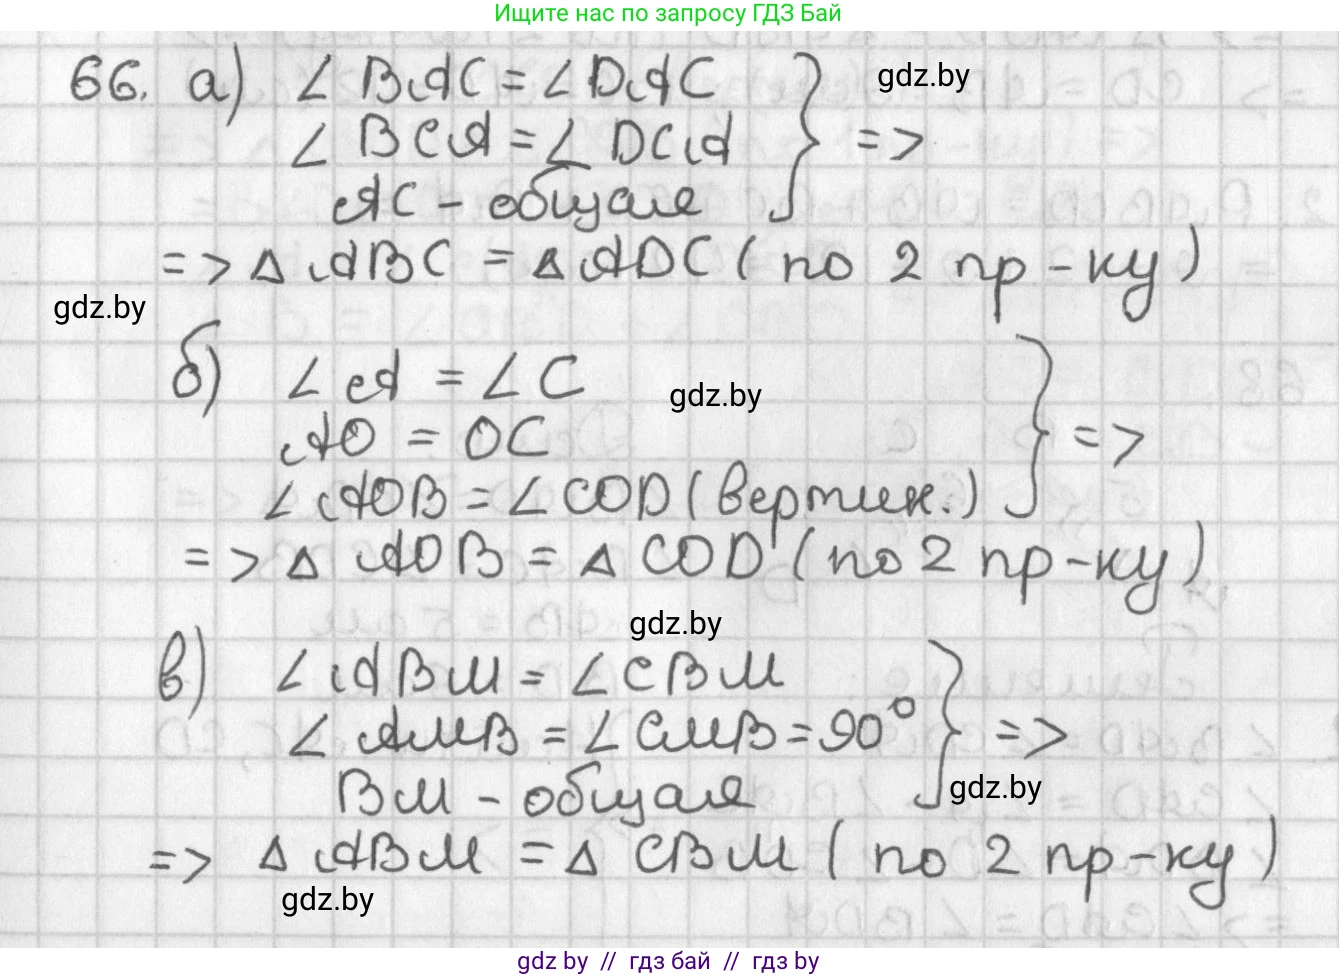 Ищите нас по запросу ГДЗ Бай
66. а) ∠ BAC = ∠ DAC
gdz.by
∠ BCA = ∠ DCA
AC - общая
=>
=> △ ABC = △ ADC (по 2 пр-ку)
gdz.by
б) ∠ A = ∠ C
gdz.by
AO = OC
=>
∠ AOB = ∠ COD (вертик.)
=> △ AOB = △ COD (по 2 пр-ку)
gdz.by
в) ∠ ABM = ∠ CBM
∠ AMB = ∠ CMB = 90° =>
BM - общая
gdz.by
=> △ ABM = △ CBM (по 2 пр-ку)
gdz.by
gdz by // гдз бай // гдз by